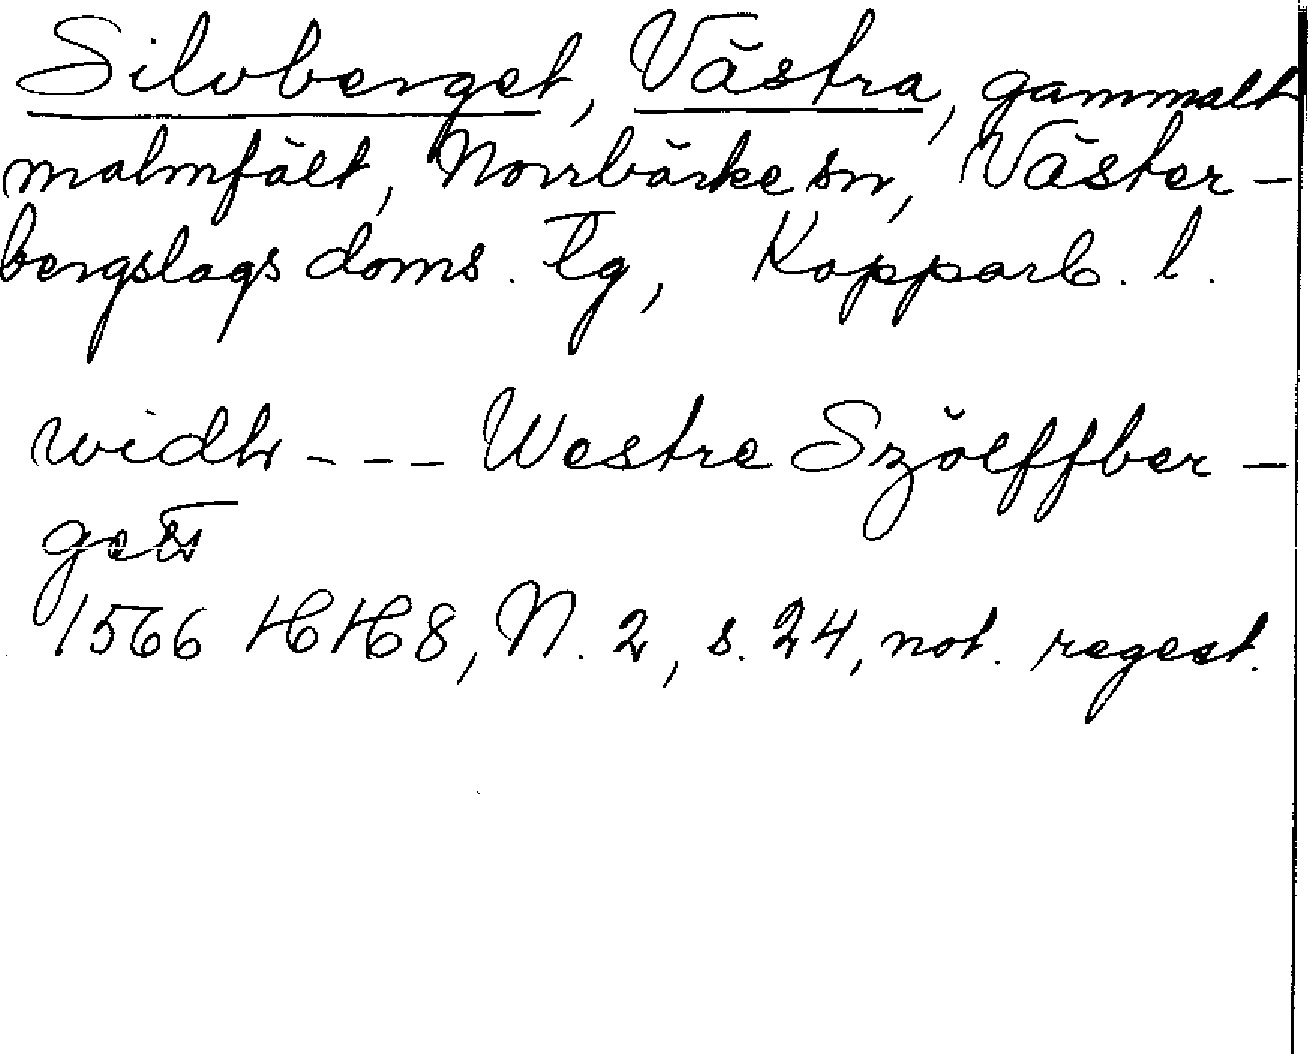 Silvberget, Västra, gammalt
malmfält, Norrbärke sn, Väster-
bergslags doms. tg, Kopparb. l.
widh --- Westre Szölffber-
gett
1566 HH 8, N. 2, s. 24, not. regest.